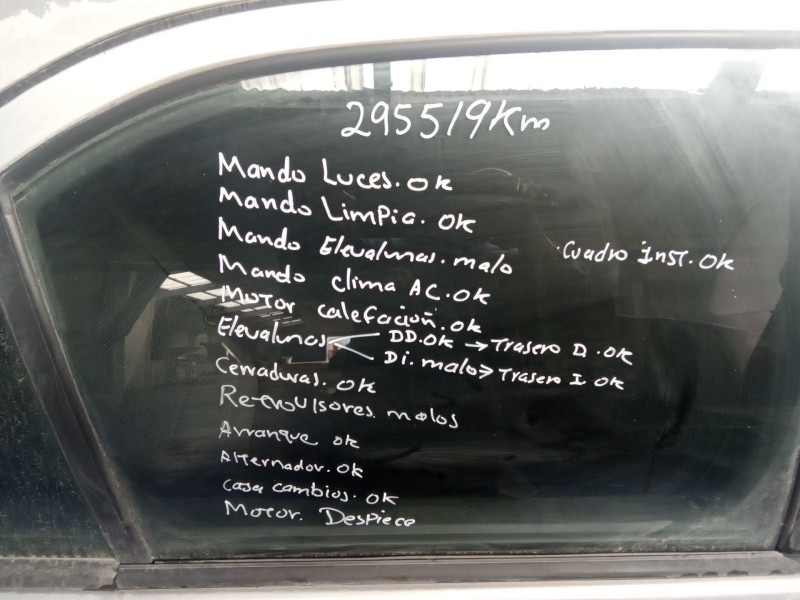 295519Km
Mando Luces. OK
Mando Limpia. OK
Mando Elevalunas. malo
. Cuadro Inst. OK
Mando clima AC. OK
Motor calefacion. OK
Elevalunas DD. OK → Trasero D. OK
Di. malo → Trasero I. OK
Cerraduras. OK
Retrovisores. malos
Arranque OK
Alternador. OK
Caja cambios. OK
Motor. Despiece